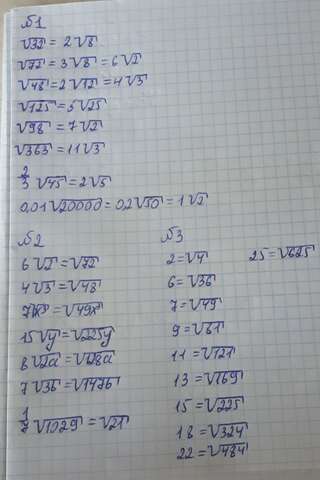 №1
√32 = 2√8
√72 = 3√8 = 6√2
√48 = 2√12 = 4√3
√125 = 5√25
√98 = 7√2
√363 = 11√3
2/3 √45 = 2√5
0,01√20000 = 0,2√50 = 1√2
№2
6√2 = √72
4√3 = √48
7√x = √49x
15√y = √225y
8√2a = √128a
7√3b = √147b
1/7 √1029 = √21
№3
2 = √4
25 = √625
6 = √36
7 = √49
9 = √81
11 = √121
13 = √169
15 = √225
18 = √324
22 = √484